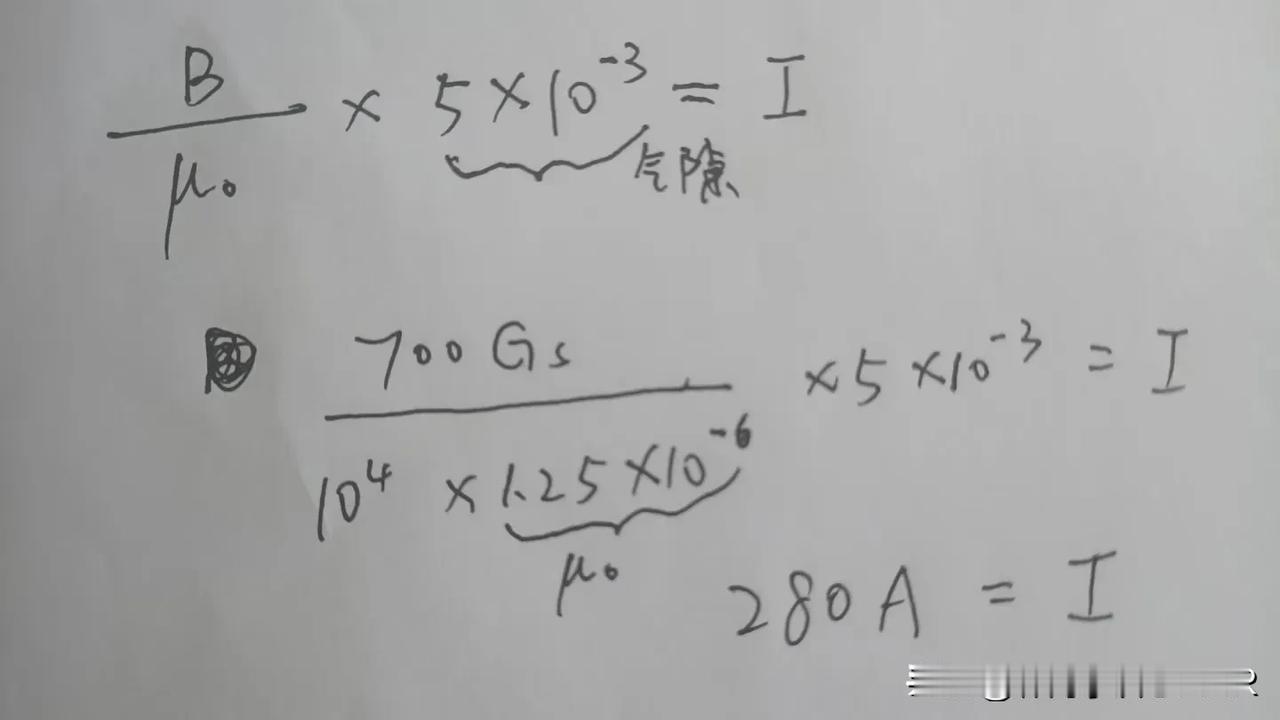 B / μ₀ × 5×10⁻³ = I
气隙
700 Gs / 10⁴ × 1.25×10⁻⁶ × 5×10⁻³ = I
μ₀
280A = I